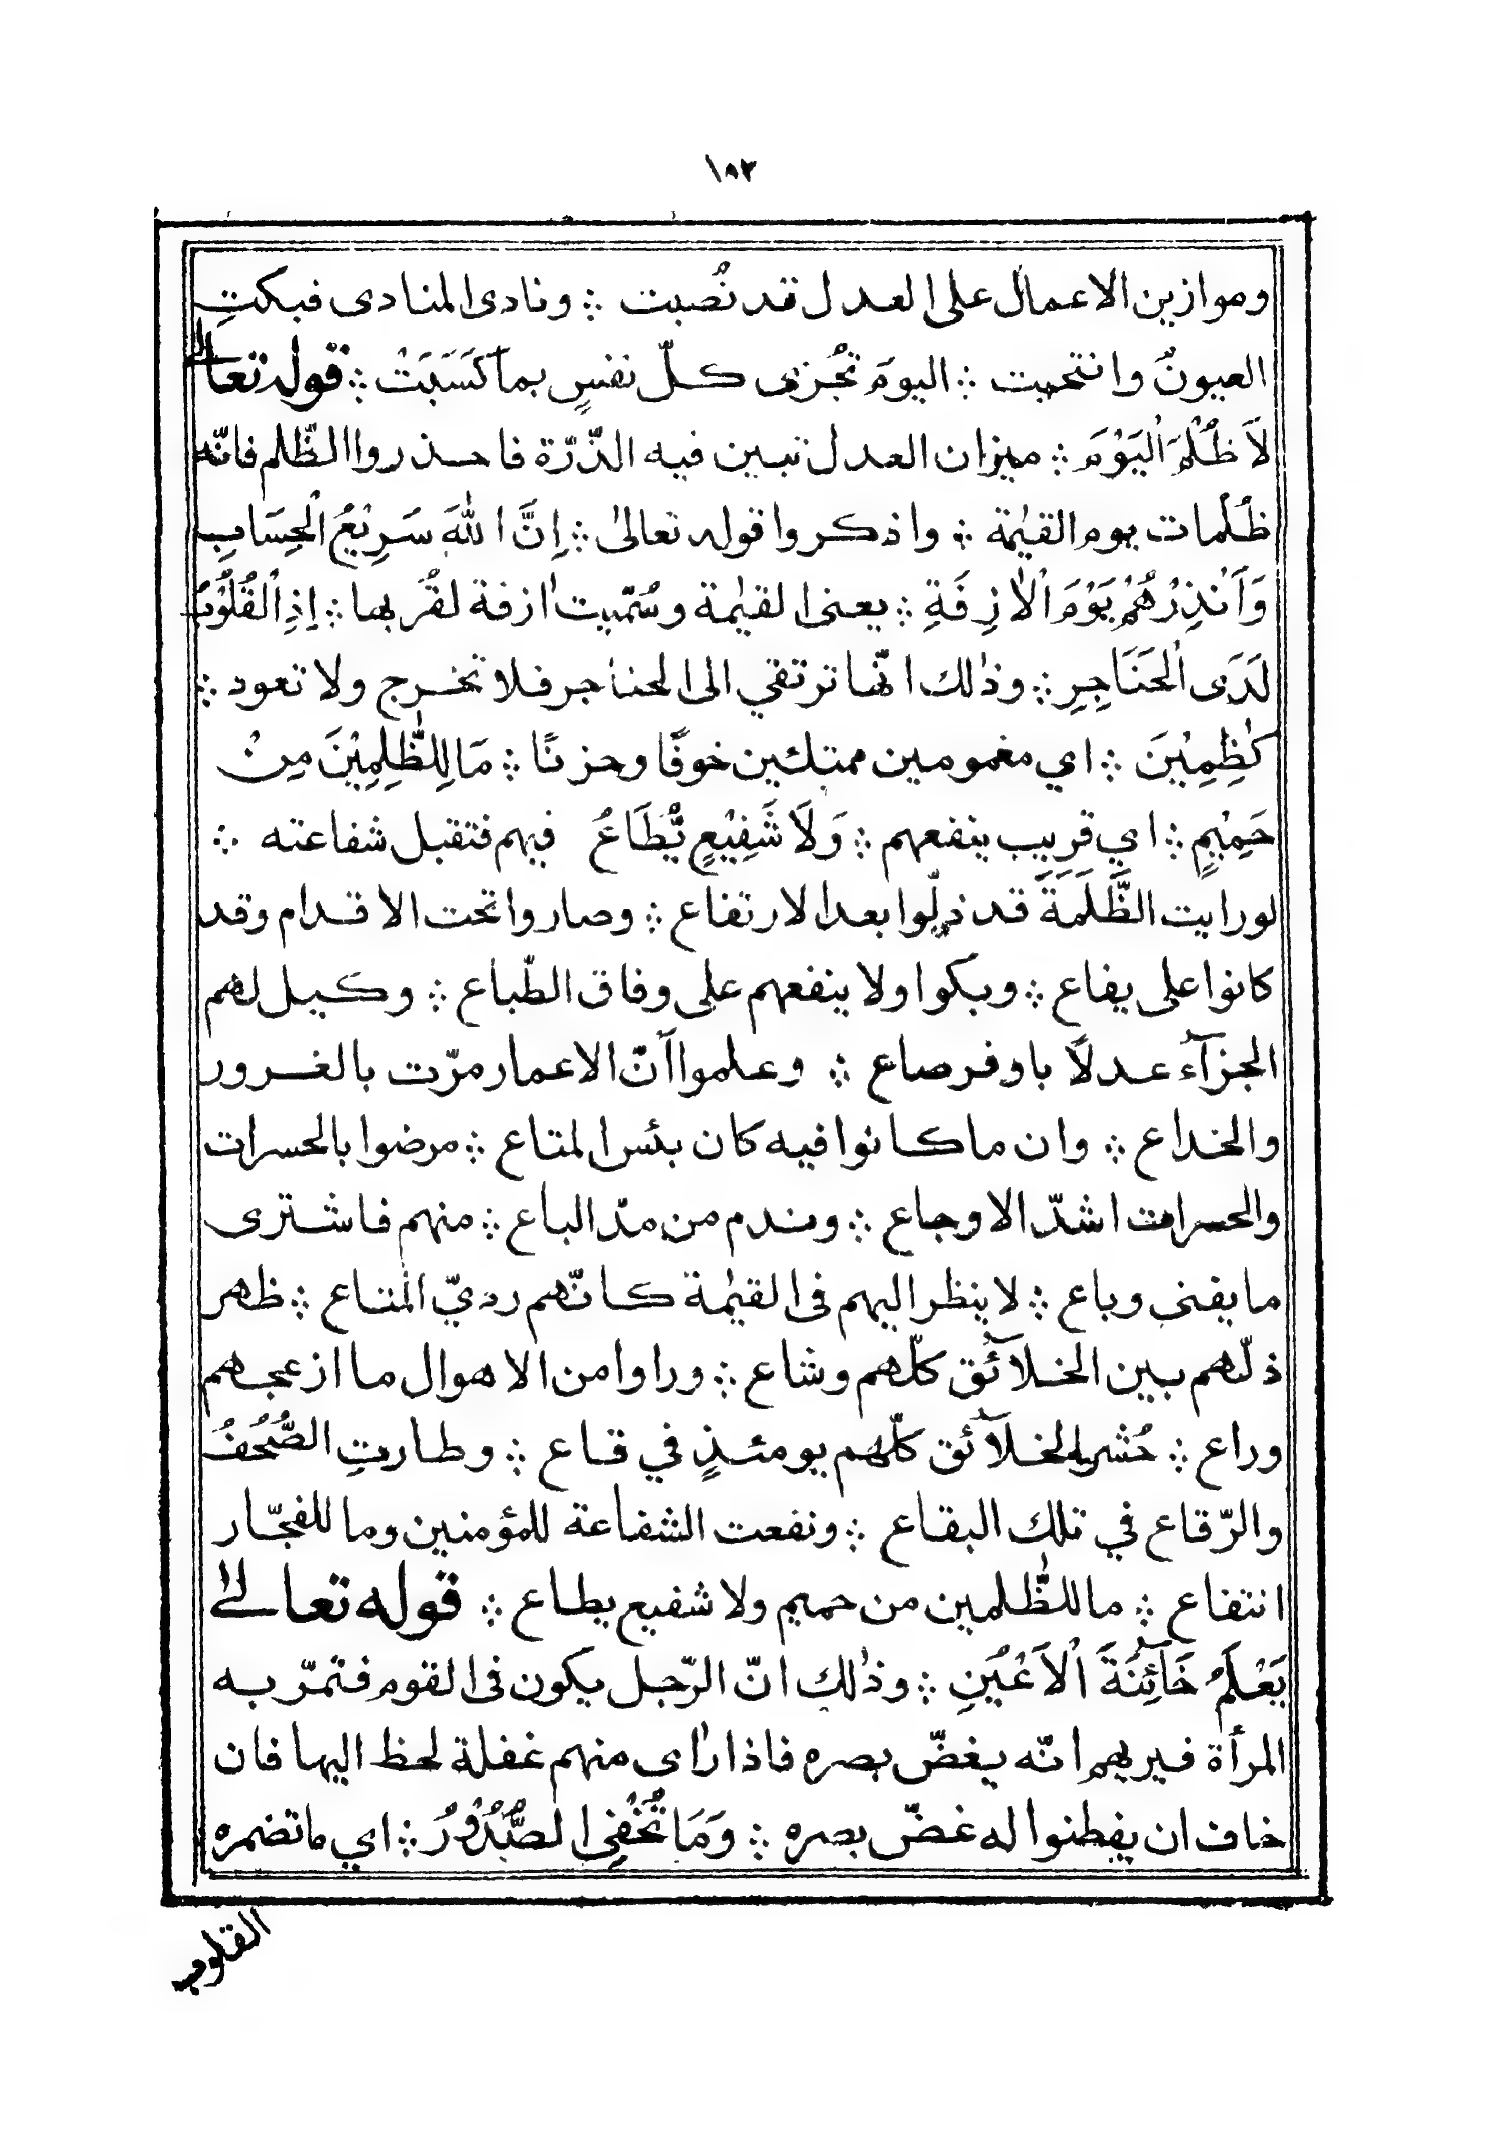 ١٥٣
وموازين الاعمال على العدل قد نُصبت ؞ ونادى المنادى فبكتِ
العيونُ وانتحبت ؞ اليومَ تُجزى كلّ نفسٍ بما كَسَبَتْ ؞ قوله تعالى
لَا ظُلْمَ الْيَوْمَ ؞ ميزان العدل تبين فيه الذّرّة فاحذروا الظّلم فانّه
ظُلمات يوم القيٰمة ؞ واذكروا قوله تعالىٰ ؞ اِنَّ اللهَ سَرِيْعُ الْحِسَابِ
وَاَنْذِرْهُمْ يَوْمَ الْاٰزِفَةِ ؞ يعنى القيٰمة وسُمّيت اٰزفة لقُربها ؞ اِذِ الْقُلُوْبُ
لَدَى الْحَنَاجِرِ ؞ وذٰلك انّها ترتقي الى الحناجر فلا تخرج ولا تعود ؞
كٰظِمِيْنَ ؞ اي مغمومين ممتلئين خوفًا وحزنًا ؞ مَا لِلظّٰلِمِيْنَ مِنْ
حَمِيْمٍ ؞ اي قريب ينفعهم ؞ وَلَا شَفِيْعٍ يُّطَاعُ فيهم فتقبل شفاعته ؞
لو رايت الظَّلَمَةَ قد ذلّوا بعد الارتفاع ؞ وصاروا تحت الاقدام وقد
كانوا على يفاع ؞ وبكوا ولا ينفعهم على وفاق الطّباع ؞ وكيل لهم
الجزآء عدلًا باوفر صاع ؞ وعلموا اَنّ الاعمار مرّت بالغرور
والخداع ؞ وان ما كانوا فيه كان بئس المتاع ؞ مرضوا بالحسرات
والحسرات اشدّ الاوجاع ؞ وندم من مدّ الباع ؞ منهم فاشترى
ما يفنى وباع ؞ لا ينظر اليهم فى القيٰمة كانّهم رديّ المتاع ؞ ظهر
ذلّهم بين الخلآئق كلّهم وشاع ؞ وراوا من الاهوال ما ازعجهم
وراع ؞ حُشر الخلآئق كلّهم يومئذٍ في قاع ؞ وطارتِ الصُّحُفُ
والرّقاع في تلك البقاع ؞ ونفعت الشفاعة للمؤمنين وما للفجّار
انتفاع ؞ ما للظّٰلمين من حميم ولا شفيع يطاع ؞ قوله تعالىٰ
يَعْلَمُ خَآئِنَةَ الْاَعْيُنِ ؞ وذٰلك انّ الرّجل يكون فى القوم فتمرّ به
المرأة فيريهم انّه يغضّ بصره فاذا راٰى منهم غفلة لحظ اليها فان
خاف ان يفطنوا له غضّ بصره ؞ وَمَا تُخْفِى الصُّدُوْرُ ؞ اي ما تضمره
القلوب